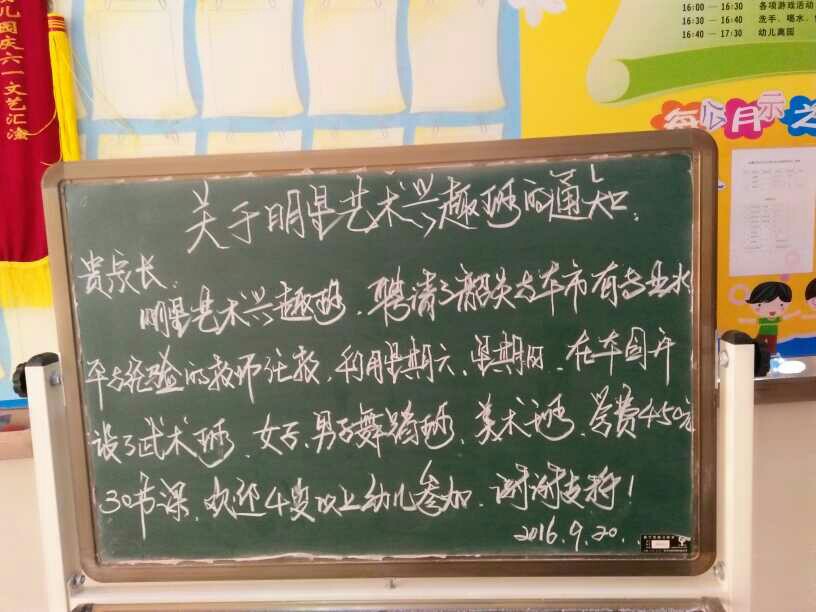 儿园庆六一文艺汇演
16:00 — 16:30 各项游戏活动
16:30 — 16:40 洗手、喝水、
16:40 — 17:30 幼儿离园
每个月示之
关于明星艺术兴趣班的通知:
贵家长、
明星艺术兴趣班、聘请了韶关去本市有专业水
平与经验的教师任教,利用星期六、星期日、在本园开
设了武术班、女子、男子舞蹈班、美术班、学费450元
30节课、欢迎4岁以上幼儿参加、谢谢支持!
2016.9.20.